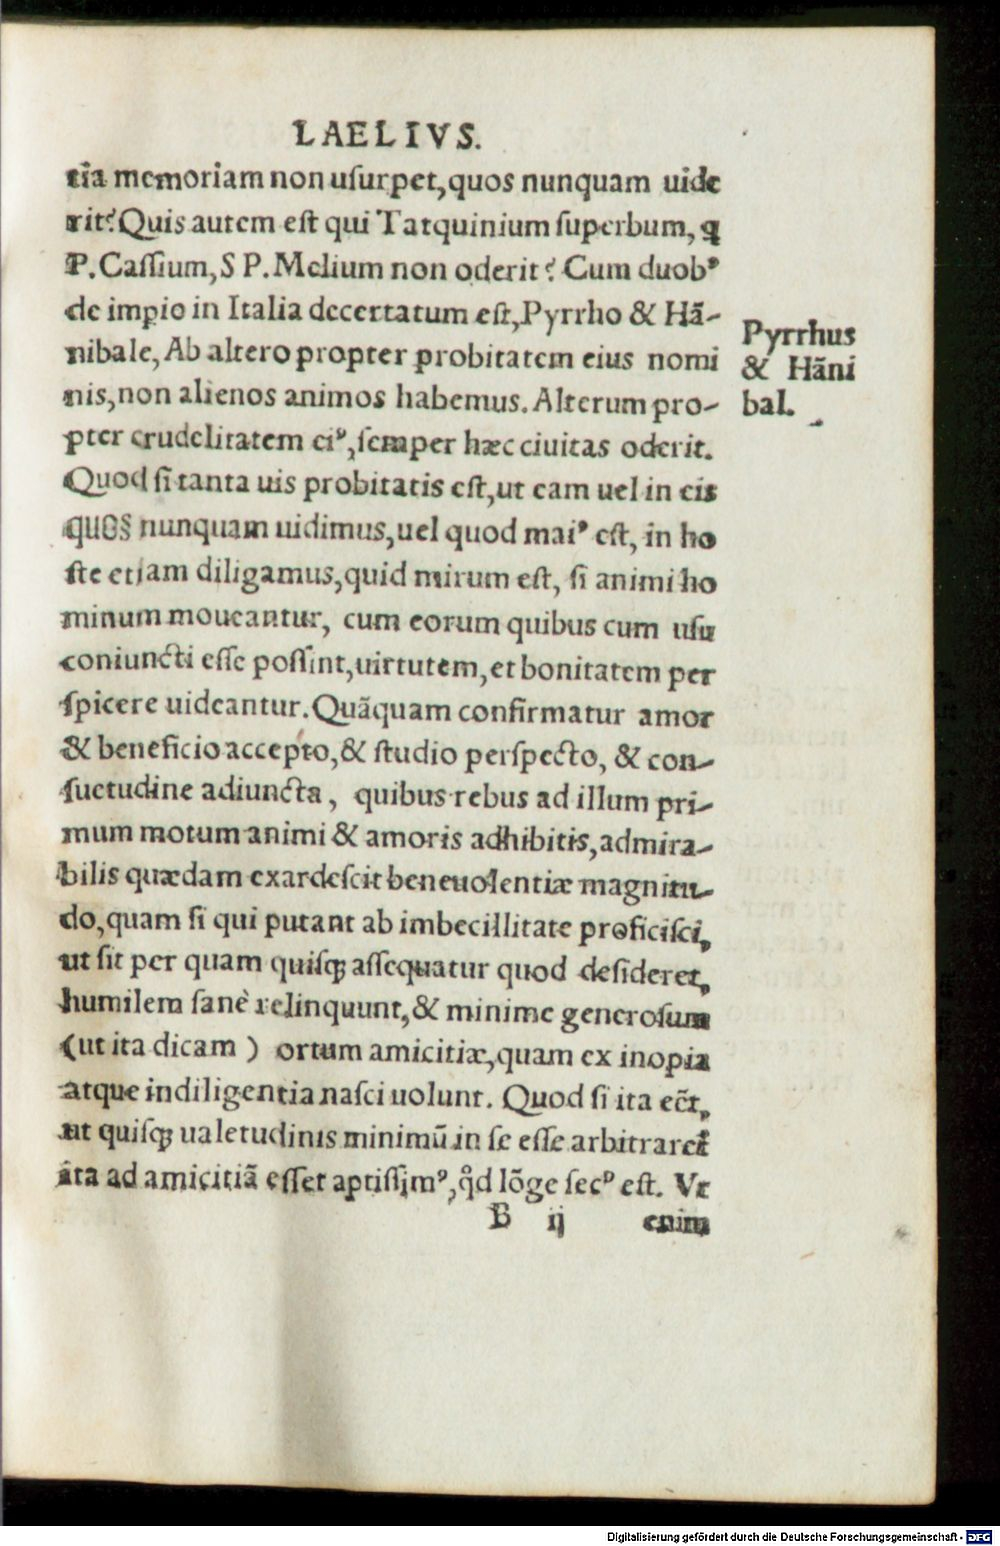 LAELIVS.
tia memoriam non uſurpet, quos nunquam uide
rit? Quis autem eſt qui Tarquinium ſuperbum, q̃
P. Caſſium, S P. Melium non oderit? Cum duobꝰ
de impio in Italia decertatum eſt, Pyrrho & Hã-
nibale, Ab altero propter probitatem eius nomi
nis, non alienos animos habemus. Alterum pro-
pter crudelitatem eiꝰ, ſemper hæc ciuitas oderit.
Quod ſi tanta uis probitatis eſt, ut eam uel in eis
quos nunquam uidimus, uel quod maiꝰ eſt, in ho
ſte etiam diligamus, quid mirum eſt, ſi animi ho
minum moueantur, cum eorum quibus cum uſu
coniuncti eſſe poſſint, uirtutem, et bonitatem per
ſpicere uideantur. Quãquam confirmatur amor
& beneficio accepto, & ſtudio perſpecto, & con-
ſuetudine adiuncta, quibus rebus ad illum pri-
mum motum animi & amoris adhibitis, admira-
bilis quædam exardeſcit beneuolentiæ magnitu-
do, quam ſi qui putant ab imbecillitate proficiſci,
ut ſit per quam quiſqꝫ aſſequatur quod deſideret,
humilem ſanè relinquunt, & minime generoſum
(ut ita dicam) ortum amicitiæ, quam ex inopia
atque indiligentia naſci uolunt. Quod ſi ita eẽt,
ut quiſqꝫ ualetudinis minimũ in ſe eſſe arbitraret
ita ad amicitiã eſſet aptiſſimꝰ, qd lõge ſecꝰ eſt. Vt
B ij enim
Pyrrhus
& Hãni
bal.
Digitalisierung gefördert durch die Deutsche Forschungsgemeinschaft - DFG